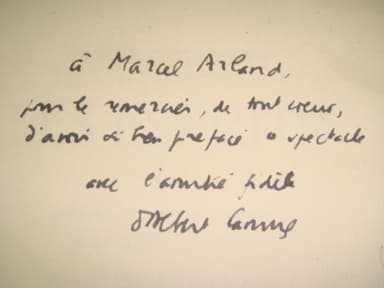 à Marcel Arland,
pour le remercier, de tout cœur,
d'avoir si bien préfacé ce spectacle
avec l'amitié fidèle
d'Albert Camus